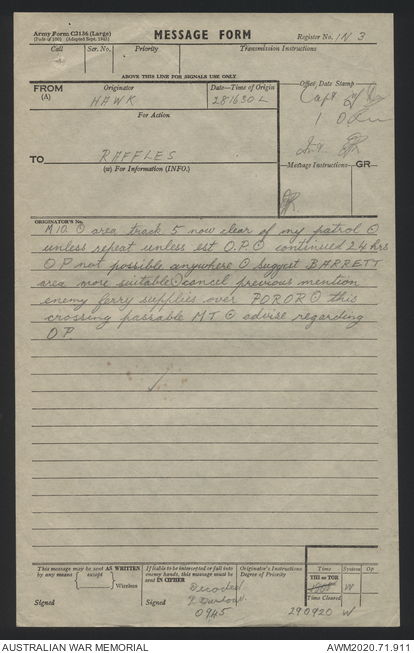 Army Form C2136 (Large)
(Pads of 100) (Adapted Sept. 1943)
MESSAGE FORM
Register No. IN 3
Call
Ser. No.
Priority
Transmission Instructions
ABOVE THIS LINE FOR SIGNALS USE ONLY
FROM
(A)
Originator
HAWK
Date—Time of Origin
281630 L
Office Date Stamp
For Action
TO
RAFFLES
(W) For Information (INFO.)
Message Instructions
GR
ORIGINATOR'S No.
M10 ⊙ area track 5 now clear of my patrol ⊙
unless repeat unless est O.P. ⊙ continued 24 hrs
OP not possible anywhere ⊙ Suggest BARRETT
area more suitable ⊙ cancel previous mention
enemy ferry supplies over POROR ⊙ this
crossing passable MT ⊙ advise regarding
OP
This message may be sent AS WRITTEN
by any means { except
} Wireless
Signed
If liable to be intercepted or fall into
enemy hands, this message must be
sent IN CIPHER
Signed
Decoded
0945
Originator's Instructions
Degree of Priority
Time
System
Op
THI or TOR
W
Time Cleared
290920 W
AUSTRALIAN WAR MEMORIAL
AWM2020.71.911